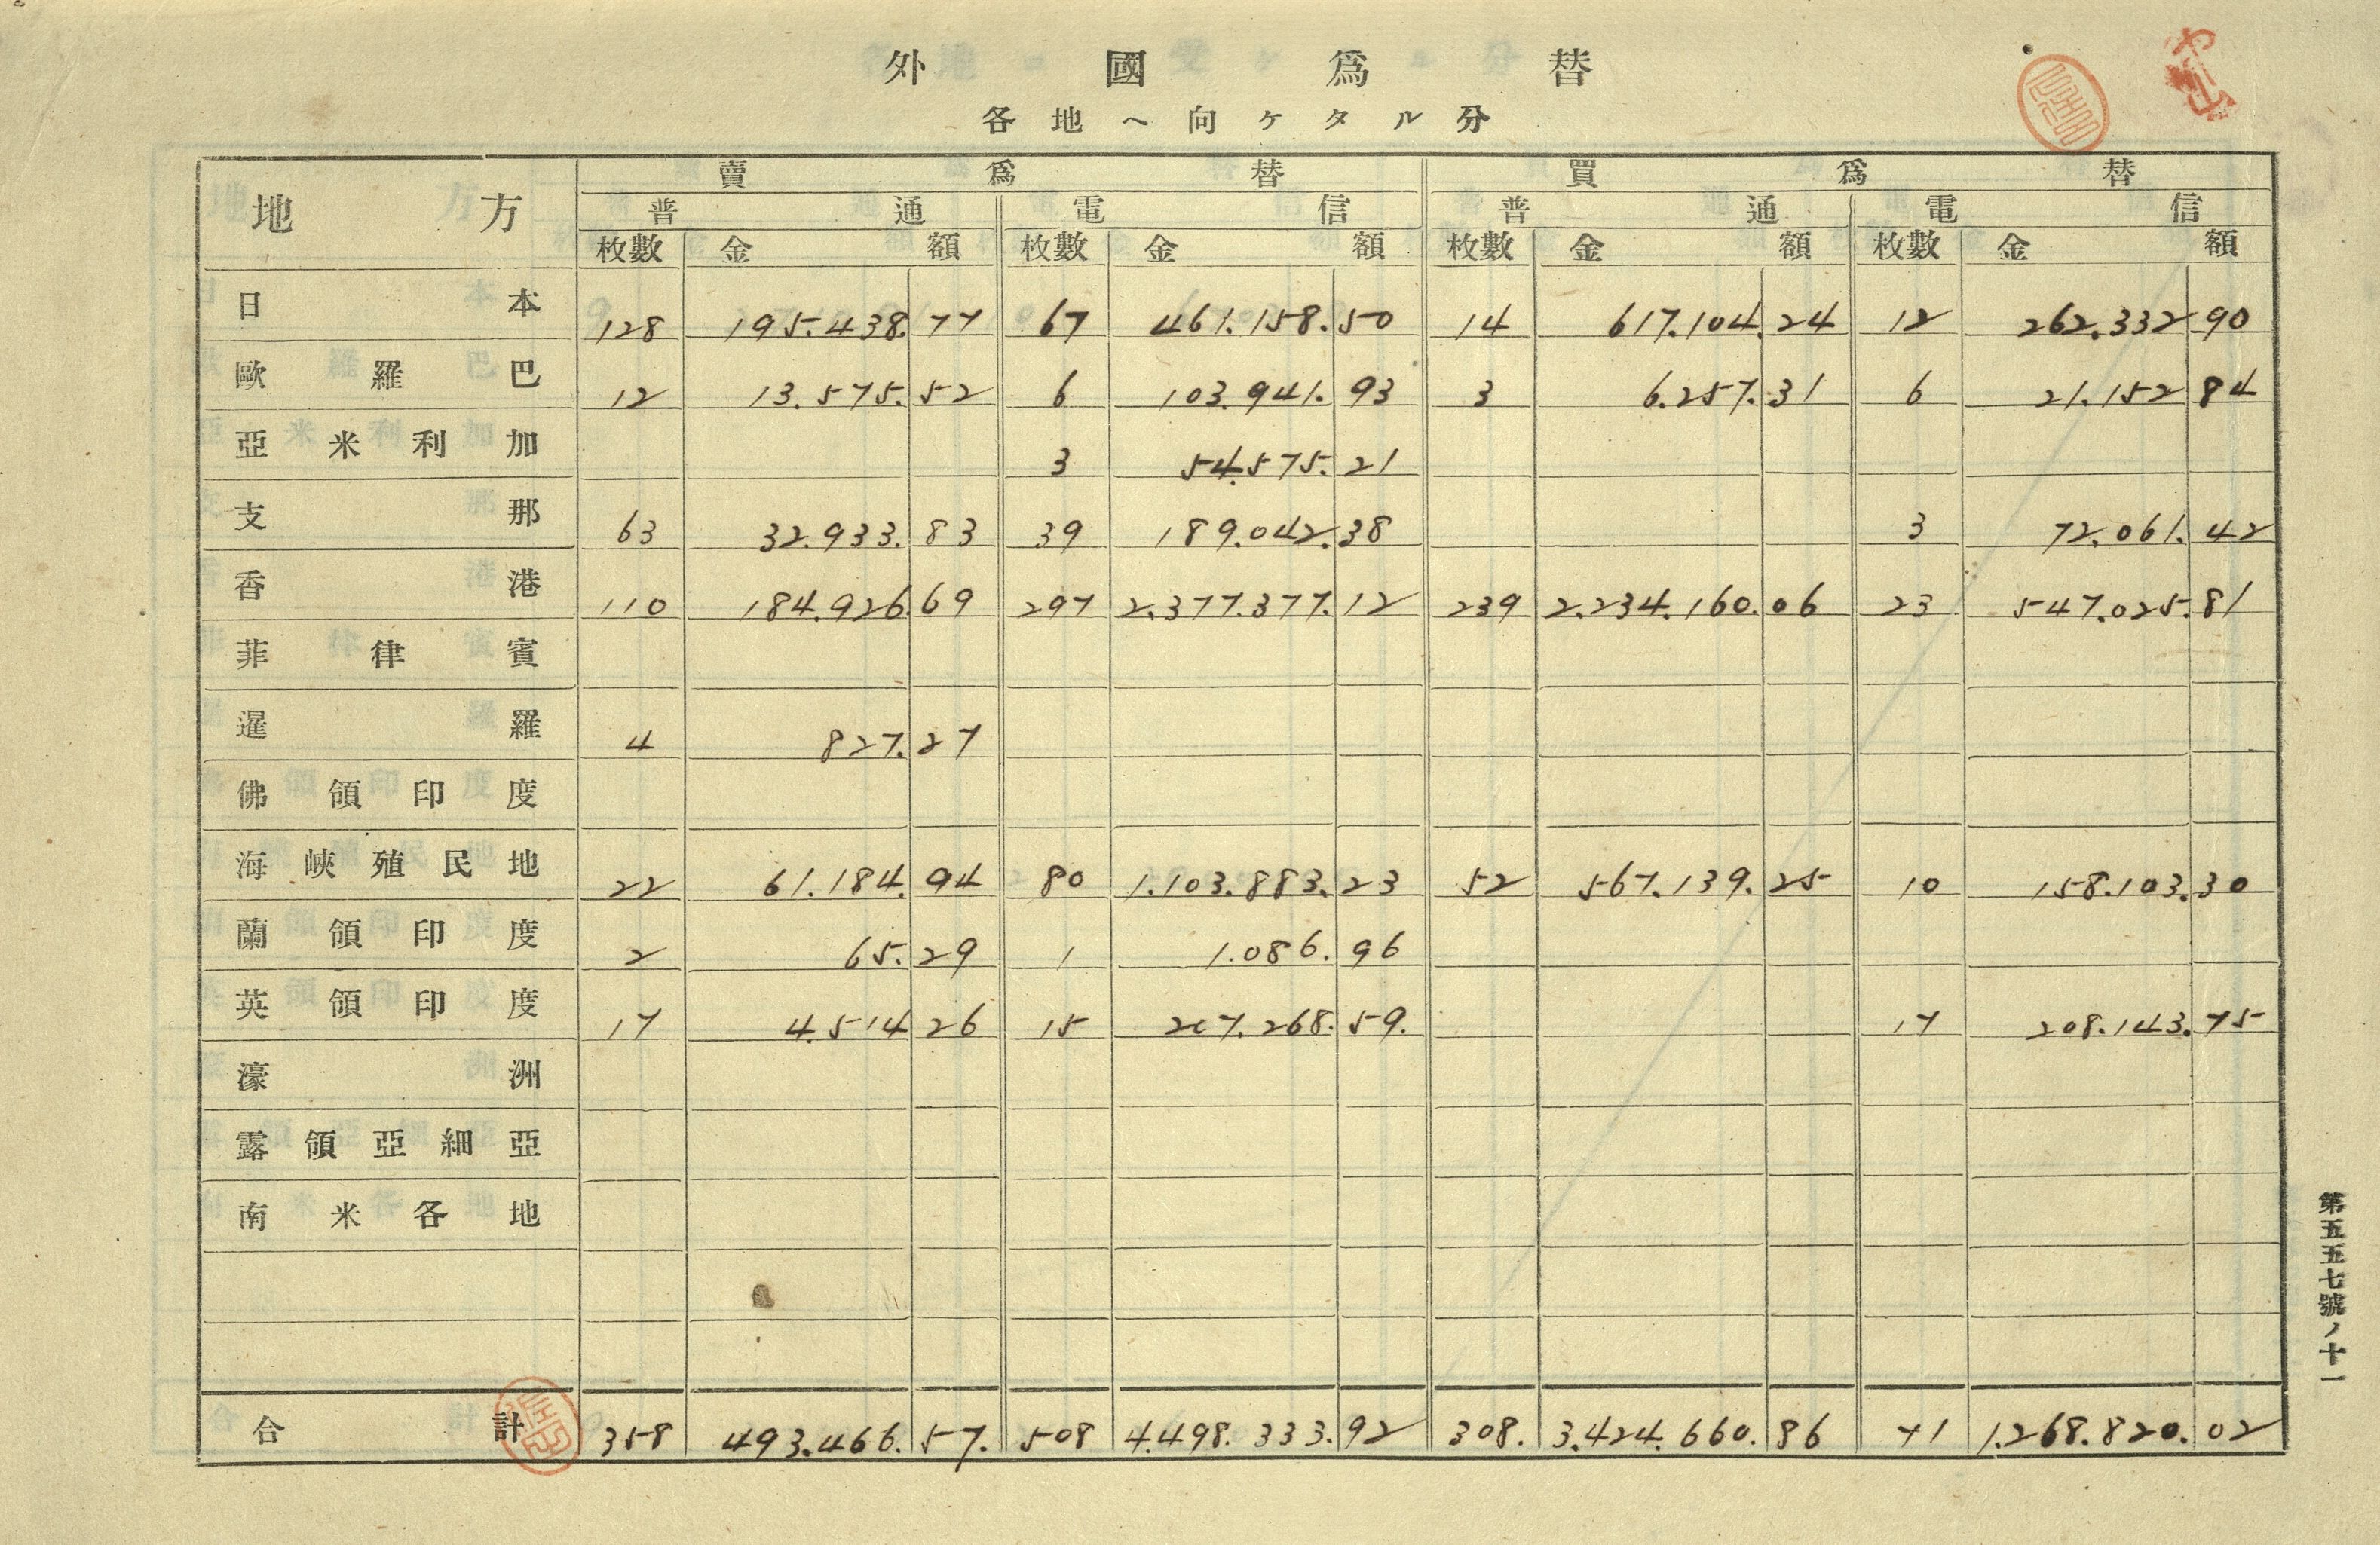 外國爲替
各地ヘ向ケタル分
地方 賣爲替 買爲替
普通 電信 普通 電信
枚數 金額 枚數 金額 枚數 金額 枚數 金額
日本 128 195.438.77 67 461.158.50 14 617.104.24 12 262.332 90
歐羅巴 12 13.575.52 6 103.941.93 3 6.257.31 6 21.152 84
亞米利加 3 54.575.21
支那 63 32.933.83 39 189.042.38 3 72.061.42
香港 110 184.926.69 297 2.377.377.12 239 2.234.160.06 23 547.025.81
菲律賓
暹羅 4 827.27
佛領印度
海峽殖民地 22 61.184.94 80 1.103.883.23 52 567.139.25 10 158.103.30
蘭領印度 2 65.29 1 1.086.96
英領印度 17 4.514 26 15 207.268.59. 17 208.143.75
濠洲
露領亞細亞
南米各地
合計 358 493.466.57. 508 4.498.333.92 308. 3.424.660.86 71 1.268.820.02
第五五七號ノ十一